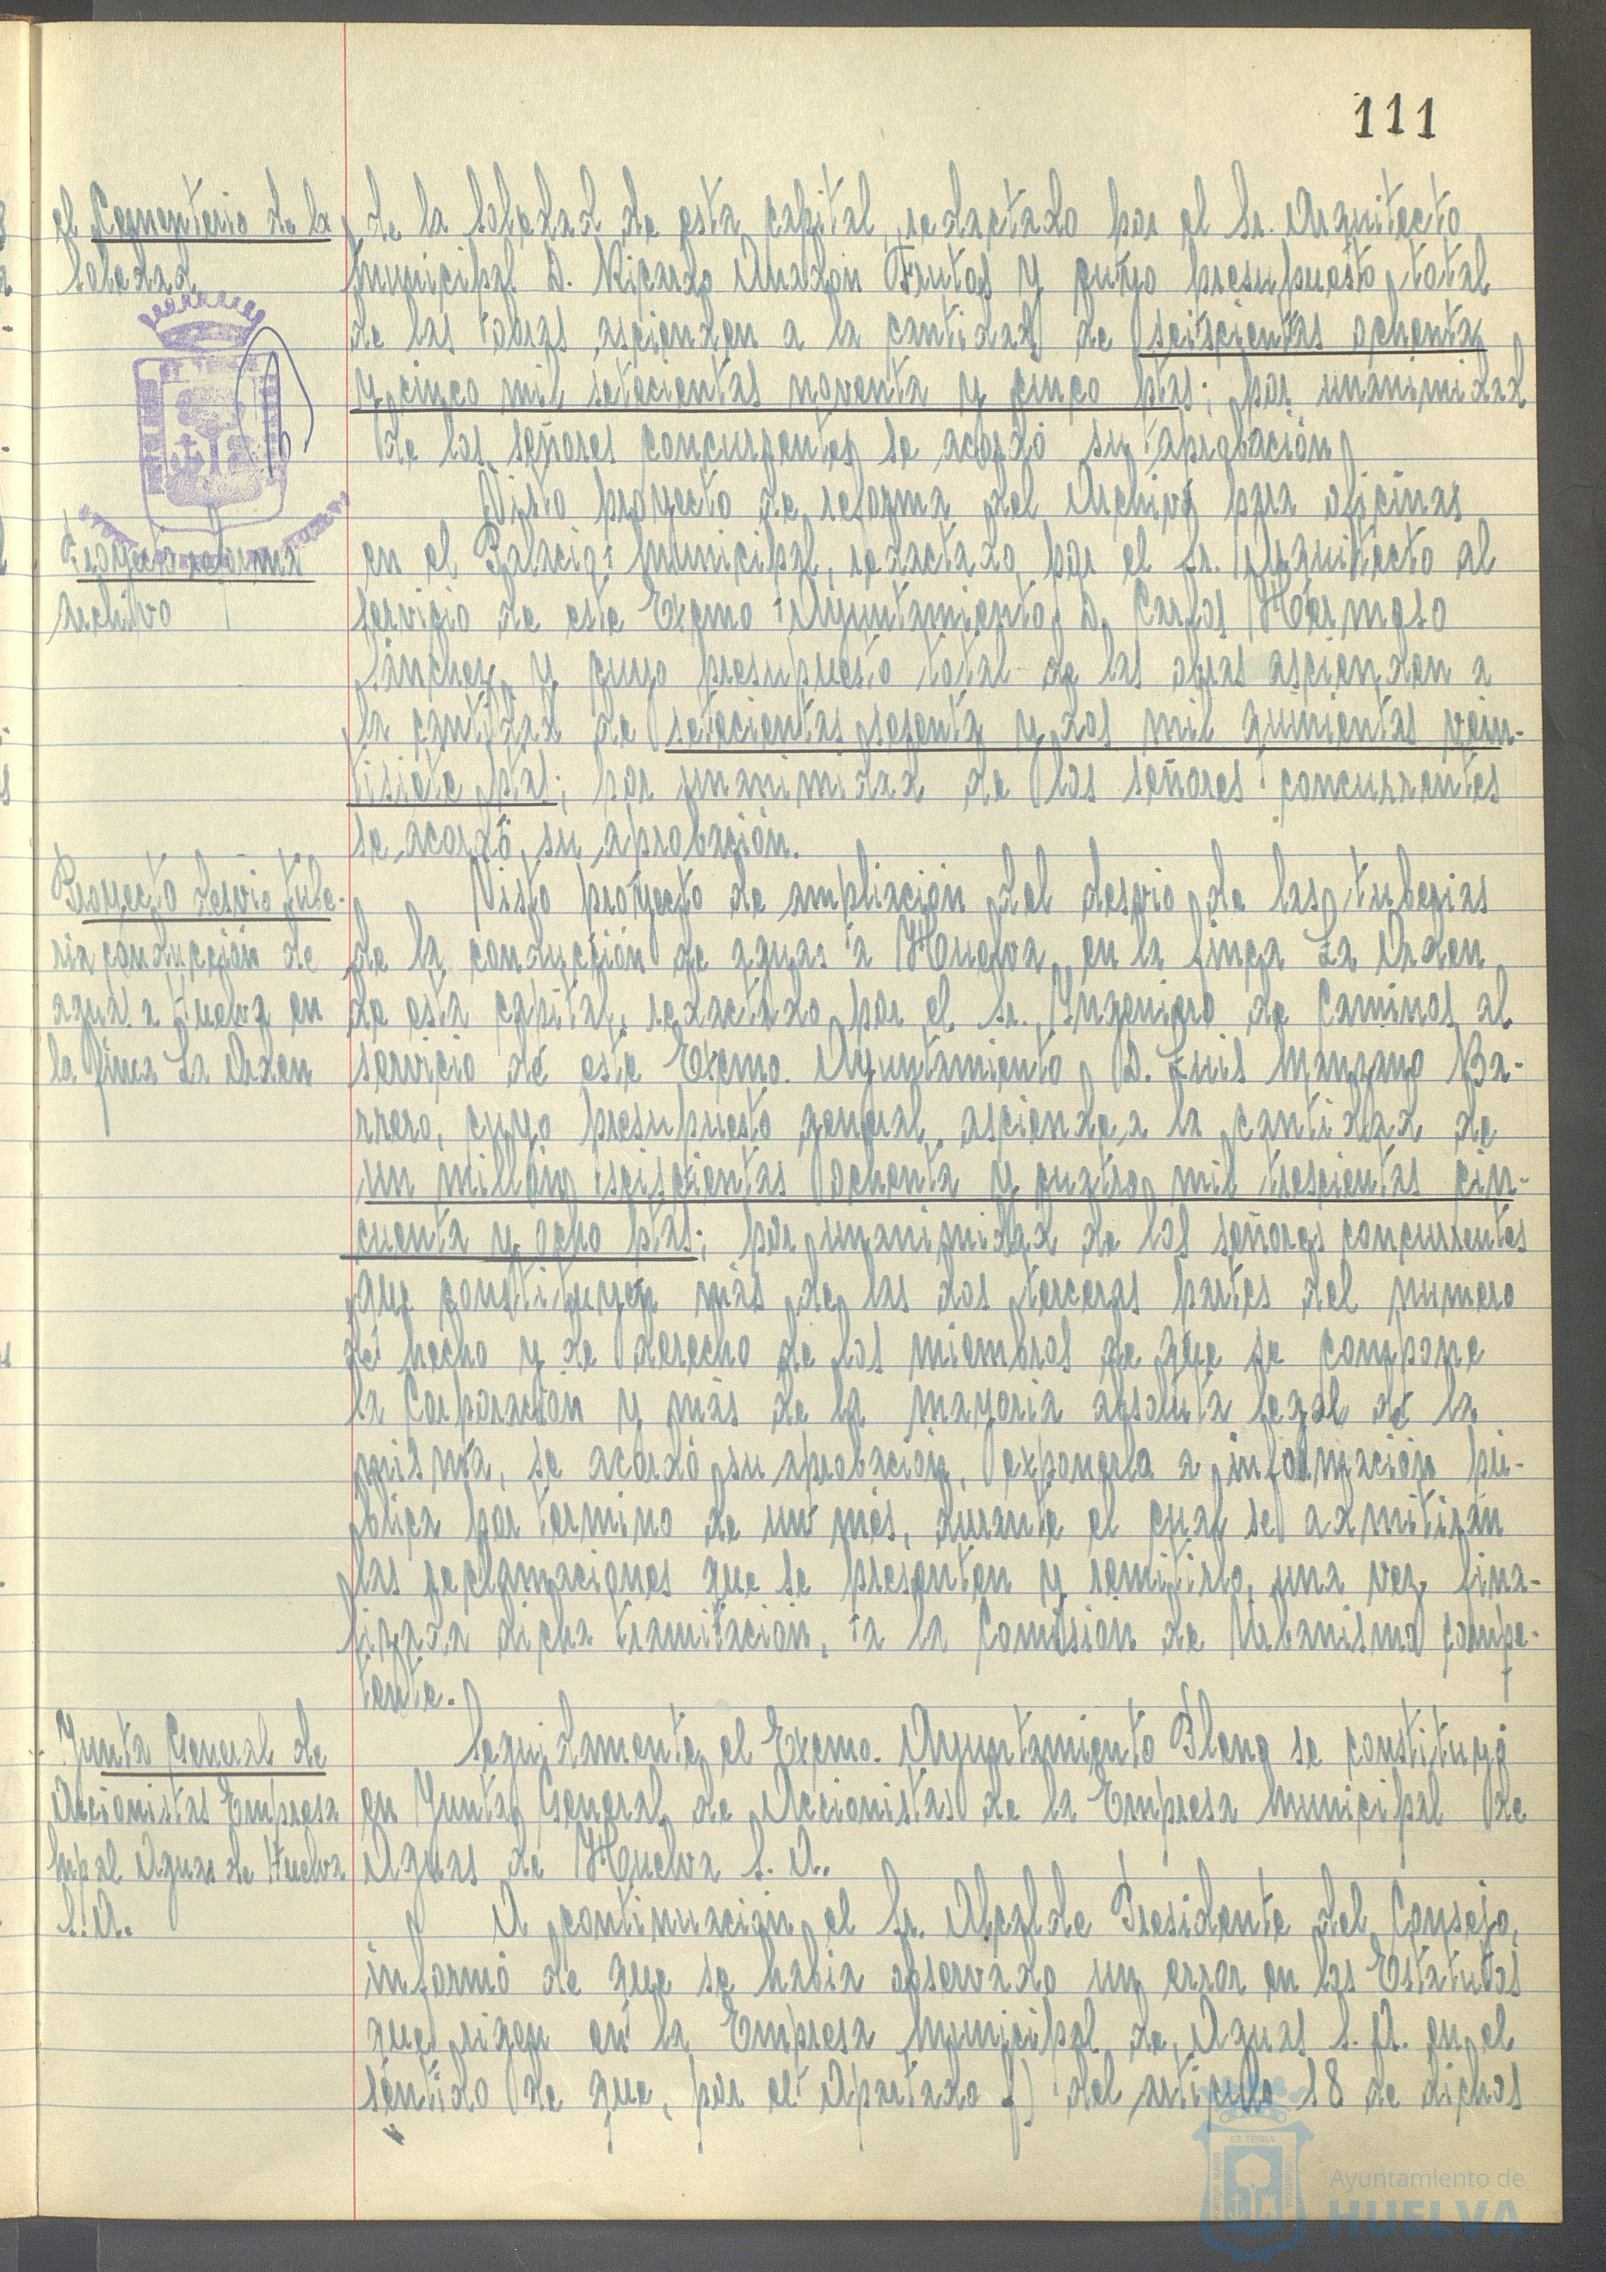 111
el Cementerio de la
Soledad
de la Soledad de esta capital, redactado por el Sr. Arquitecto
Municipal D. Ricardo Anadón Frutos y cuyo presupuesto total
de las obras ascienden a la cantidad de seiscientas ochenta
y cinco mil setecientas noventa y cinco ptas; por unanimidad
de los señores concurrentes se acordó su aprobación
Proyecto reforma
Archivo
Visto proyecto de reforma del Archivo para oficinas
en el Palacio Municipal, redactado por el Sr. Arquitecto al
servicio de este Excmo Ayuntamiento D. Carlos Hermoso
Sánchez y cuyo presupuesto total de las obras ascienden a
la cantidad de setecientas sesenta y dos mil quinientas vein-
tisiete ptas; por unanimidad de los señores concurrentes
se acordó su aprobación.
Proyecto desvio tube-
ria conducción de
aguas a Huelva en
la finca La Orden
Visto proyecto de ampliación del desvio de las tuberias
de la conducción de aguas a Huelva en la finca La Orden
de esta capital, redactado por el Sr. Ingeniero de Caminos al
servicio de este Excmo. Ayuntamiento D. Luis Manzano Ba-
rrero, cuyo presupuesto general asciende a la cantidad de
un millón seiscientas ochenta y cuatro mil trescientas cin-
cuenta y ocho ptas; por unanimidad de los señores concurrentes
que constituyen más de las dos terceras partes del numero
de hecho y de derecho de los miembros de que se compone
la Corporación y más de la mayoria absoluta legal de la
misma, se acordó su aprobación, exponerla a información pú-
blica por termino de un mes, durante el cual se admitirán
las reclamaciones que se presenten y remitirlo, una vez fina-
lizada dicha tramitación, a la Comisión de Urbanismo compe-
tente.
Junta General de
Accionistas Empresa
Mpal Aguas de Huelva
S.A.
Seguidamente el Excmo. Ayuntamiento Pleno se constituyó
en Junta General de Accionistas de la Empresa Municipal de
Aguas de Huelva S. A.
A continuación el Sr. Alcalde Presidente del Consejo,
informó de que se habia observado un error en los Estatutos
que rigen en la Empresa Municipal de Aguas S. A. en el
sentido de que, por el Apartado f) del articulo 18 de dichos
Ayuntamiento de
HUELVA